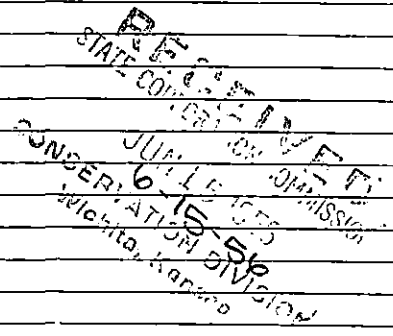 RECEIVED
STATE CORPORATION COMMISSION
JUN 15 1956
6-15-56
CONSERVATION DIVISION
Wichita, Kansas